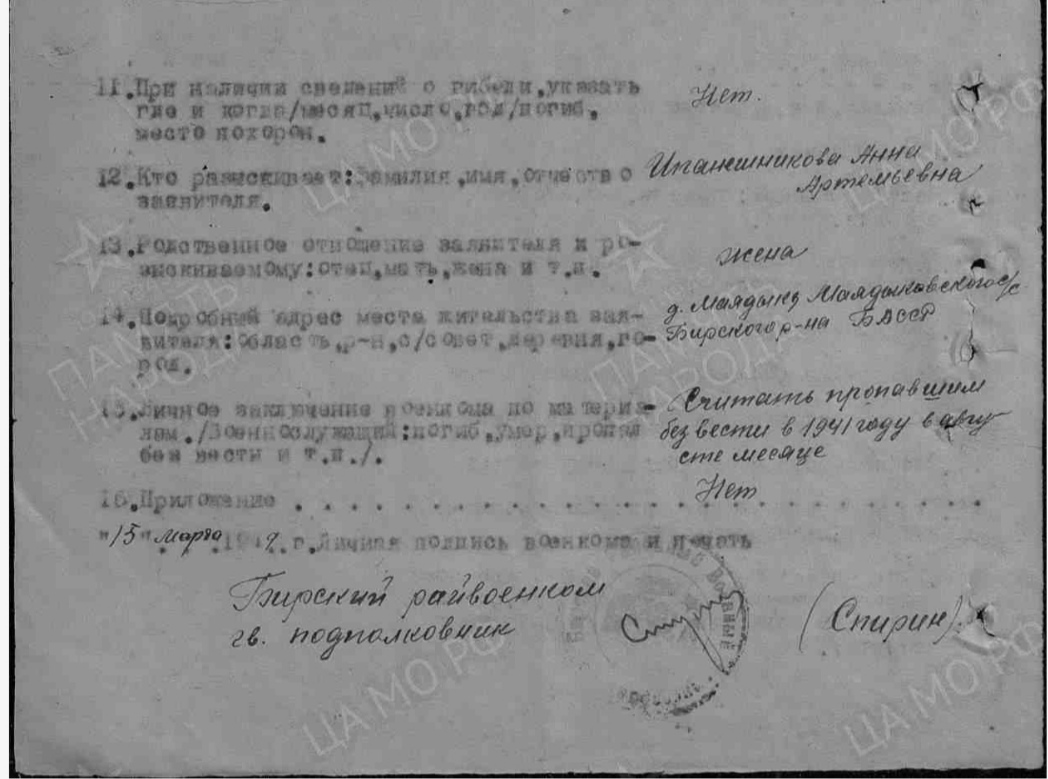 11.При наличии сведений о гибели,указать
где и когда/месяц,число,год/погиб,
место похорон.
Нет.
12.Кто разыскивает:Фамилия,имя,отчество
заявителя.
Ипанешникова Анна
Артемьевна
13.Родственное отношение заявителя к ро-
зыскиваемому:отец,мать,жена и т.п.
жена
14.Подробный адрес места жительства зая-
вителя:область,р-н,с/совет,деревня,го-
род.
д. Маядыкд Маядыковского с/с
Бирского р-на БАССР
15.Личное заключение военкома по материа-
лам./Военнослужащий:погиб,умер,пропал
без вести и т.п./.
Считать пропавшим
без вести в 1941 году в авгу
сте месяце
16.Приложение . . . . . . . . . . . . . . . . . . . .
Нет
"15" марта 1947. г.Личная подпись военкома и печать
Бирский райвоенком
гв. подполковник
(Спирин).
ПАМЯТЬ
НАРОДА
ЦА МО РФ
ПАМЯТЬ
НАРОДА
ЦА МО РФ
ЦА МО РФ
ЦА МО РФ